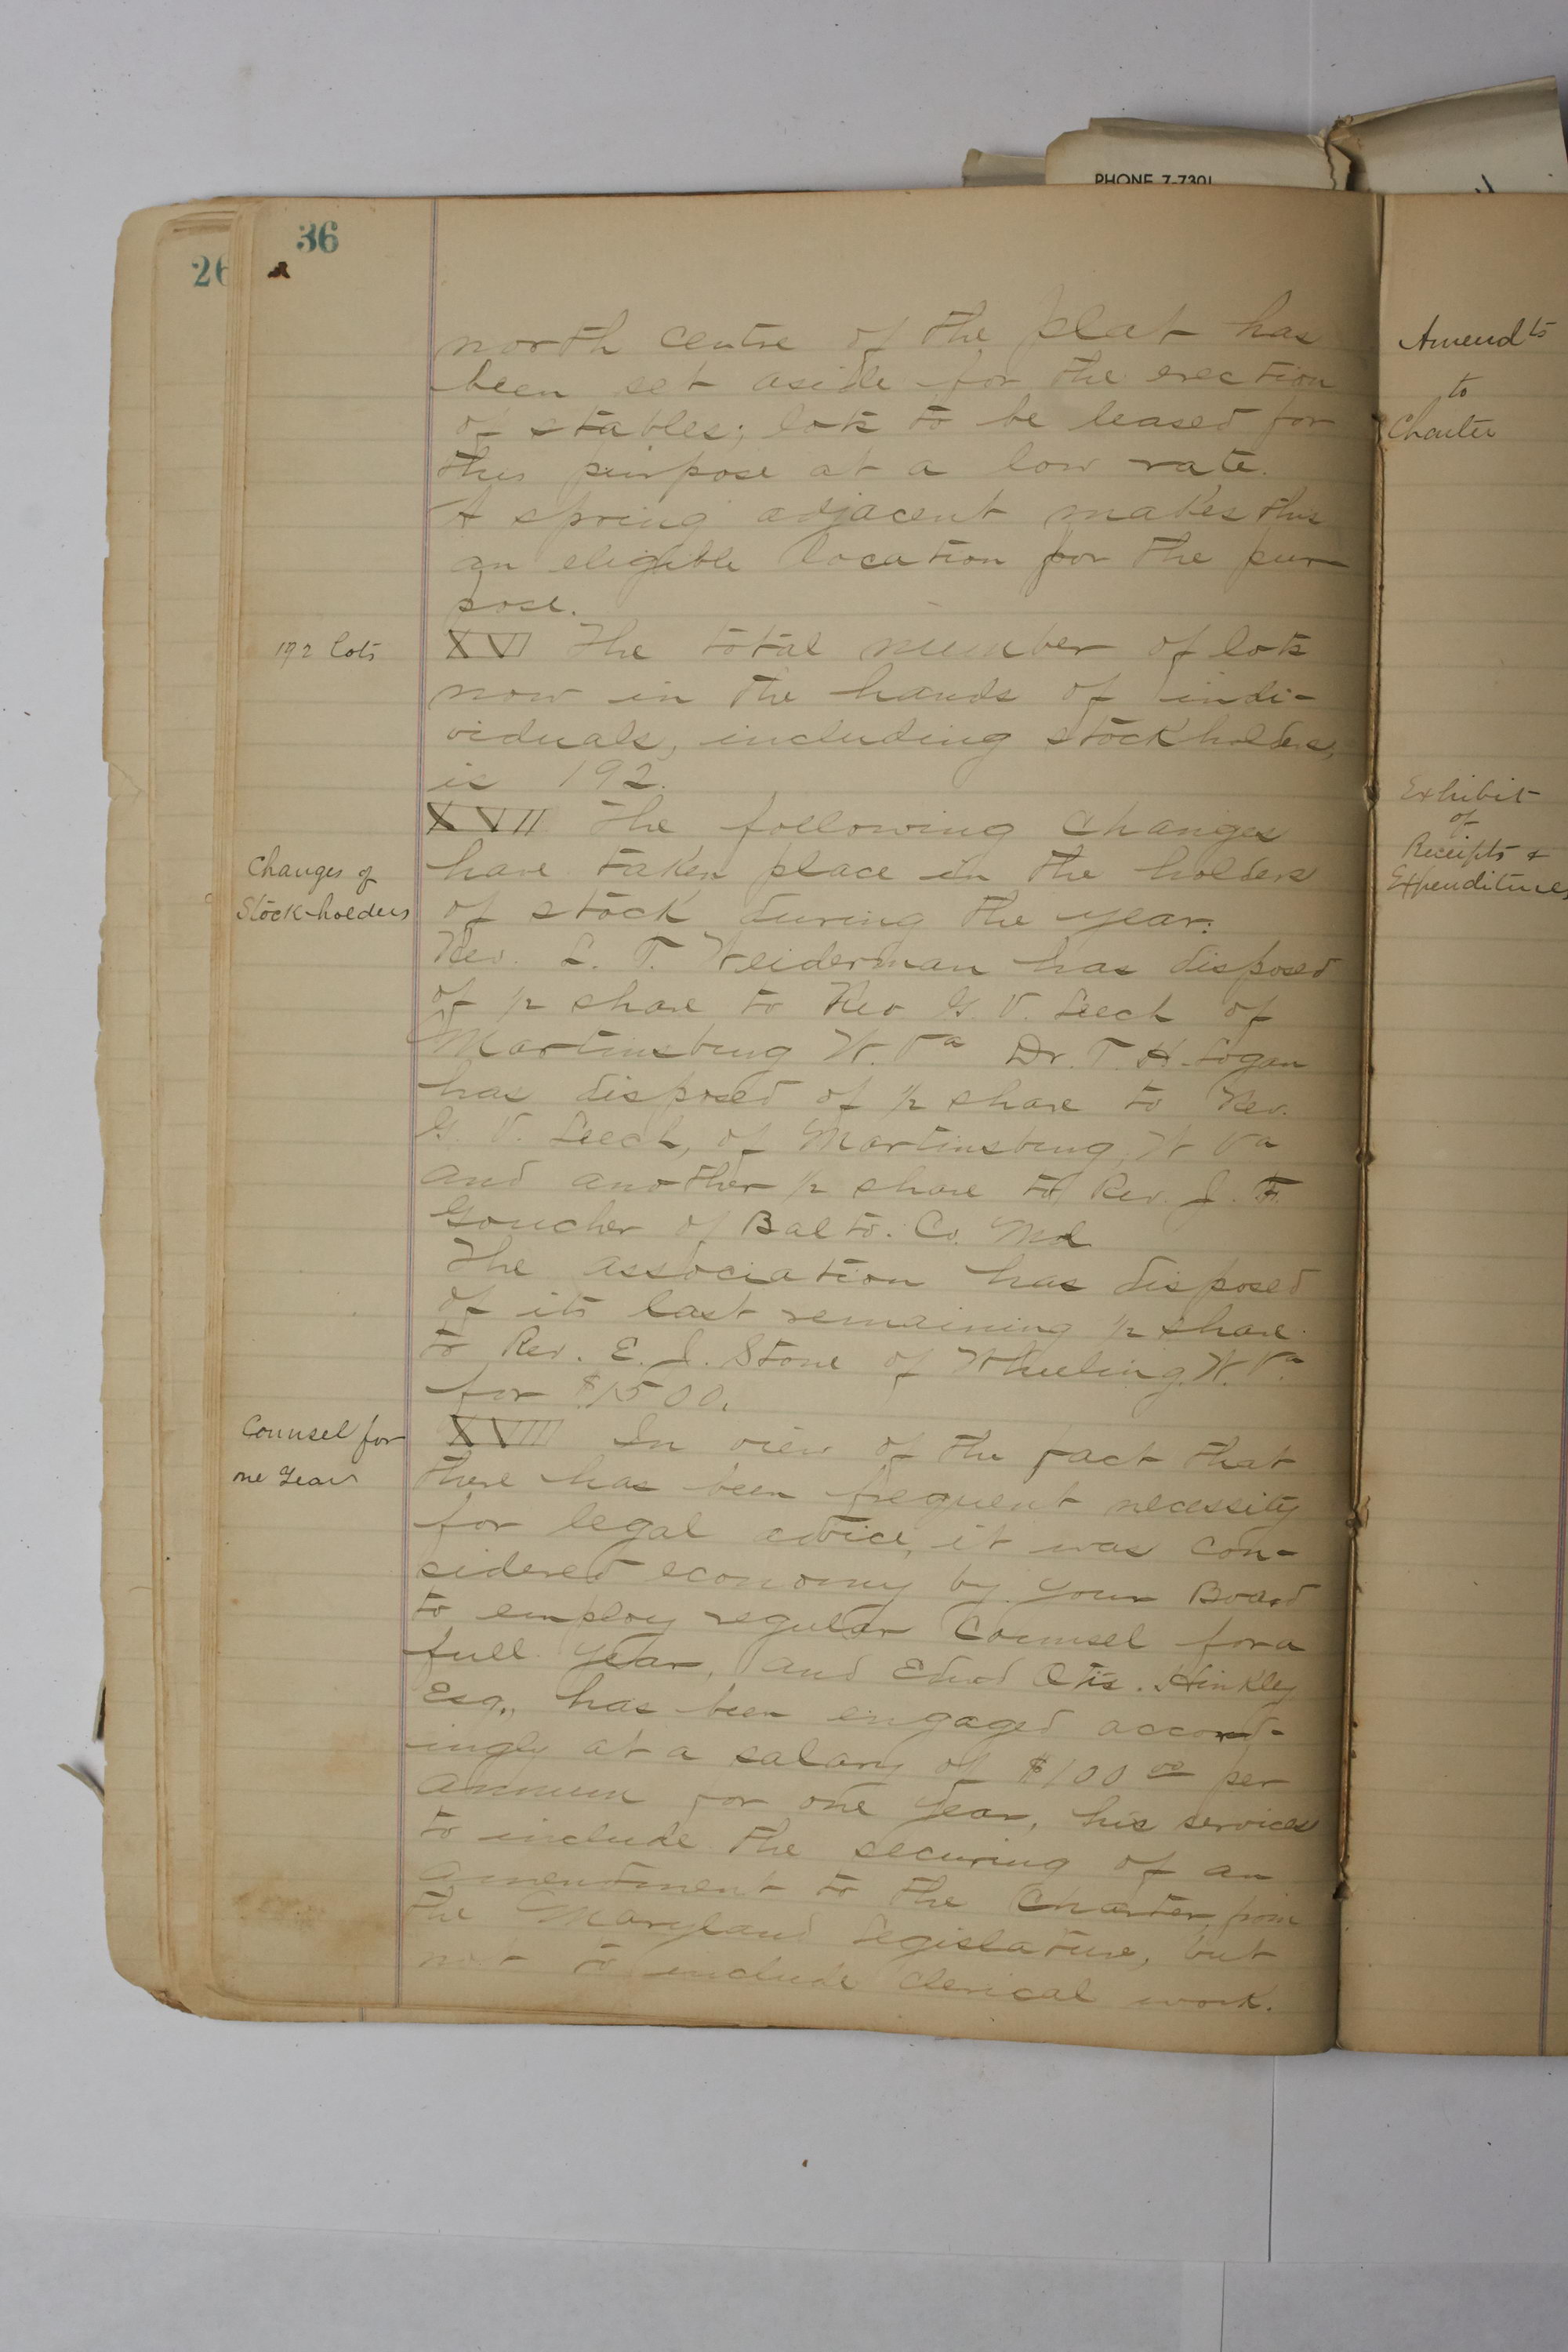 PHONE 7-7301
36
26
north centre of the plat has
been set aside for the erection
of stables; lots to be leased for
this purpose at a low rate.
A spring adjacent makes this
an eligible location for the pur
pose.
192 lots
XVI The total number of lots
now in the hands of indi-
viduals, including stockholders,
is 192.
XVII The following changes
Changes of
Stock-holders
have taken place in the holders
of stock during the year:
Rev. L. T. Weiderman has disposed
of 1/2 share to Rev G. V. Leech of
Martinsburg W. Va Dr. T. H. Logan
has disposed of 1/2 share to Rev.
G. V. Leech, of Martinsburg, W Va
and another 1/2 share to Rev. J. F.
Goucher of Balto. Co. Md
The association has disposed
of its last remaining 1/2 share
to Rev. E. J. Stone of Wheeling, W. Va
for $1500.
Counsel for
one Year
XVIII In view of the fact that
there has been frequent necessity
for legal advice, it was con-
sidered economy by your Board
to employ regular Counsel for a
full year, and Edwd Otis. Hinkley
Esq., has been engaged accord-
ingly at a salary of $100 00 per
annum for one year, his services
to include the securing of an
amendment to the Charter, from
the Maryland Legislature, but
not to include clerical work.
Amendts
to
Charter
Exhibit
of
Receipts &
Expenditures